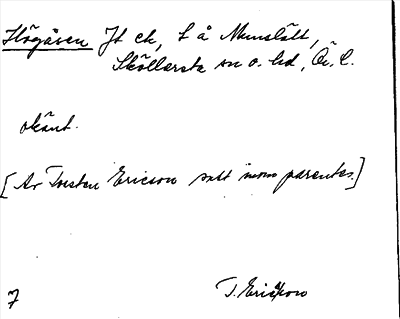 Högåsen Jt ck, L å Munslätt,
Sköllersta sn o. hd, Ör. l.
okänt.
[Av Torsten Ericson satt inom parentes.]
7 T. Ericson